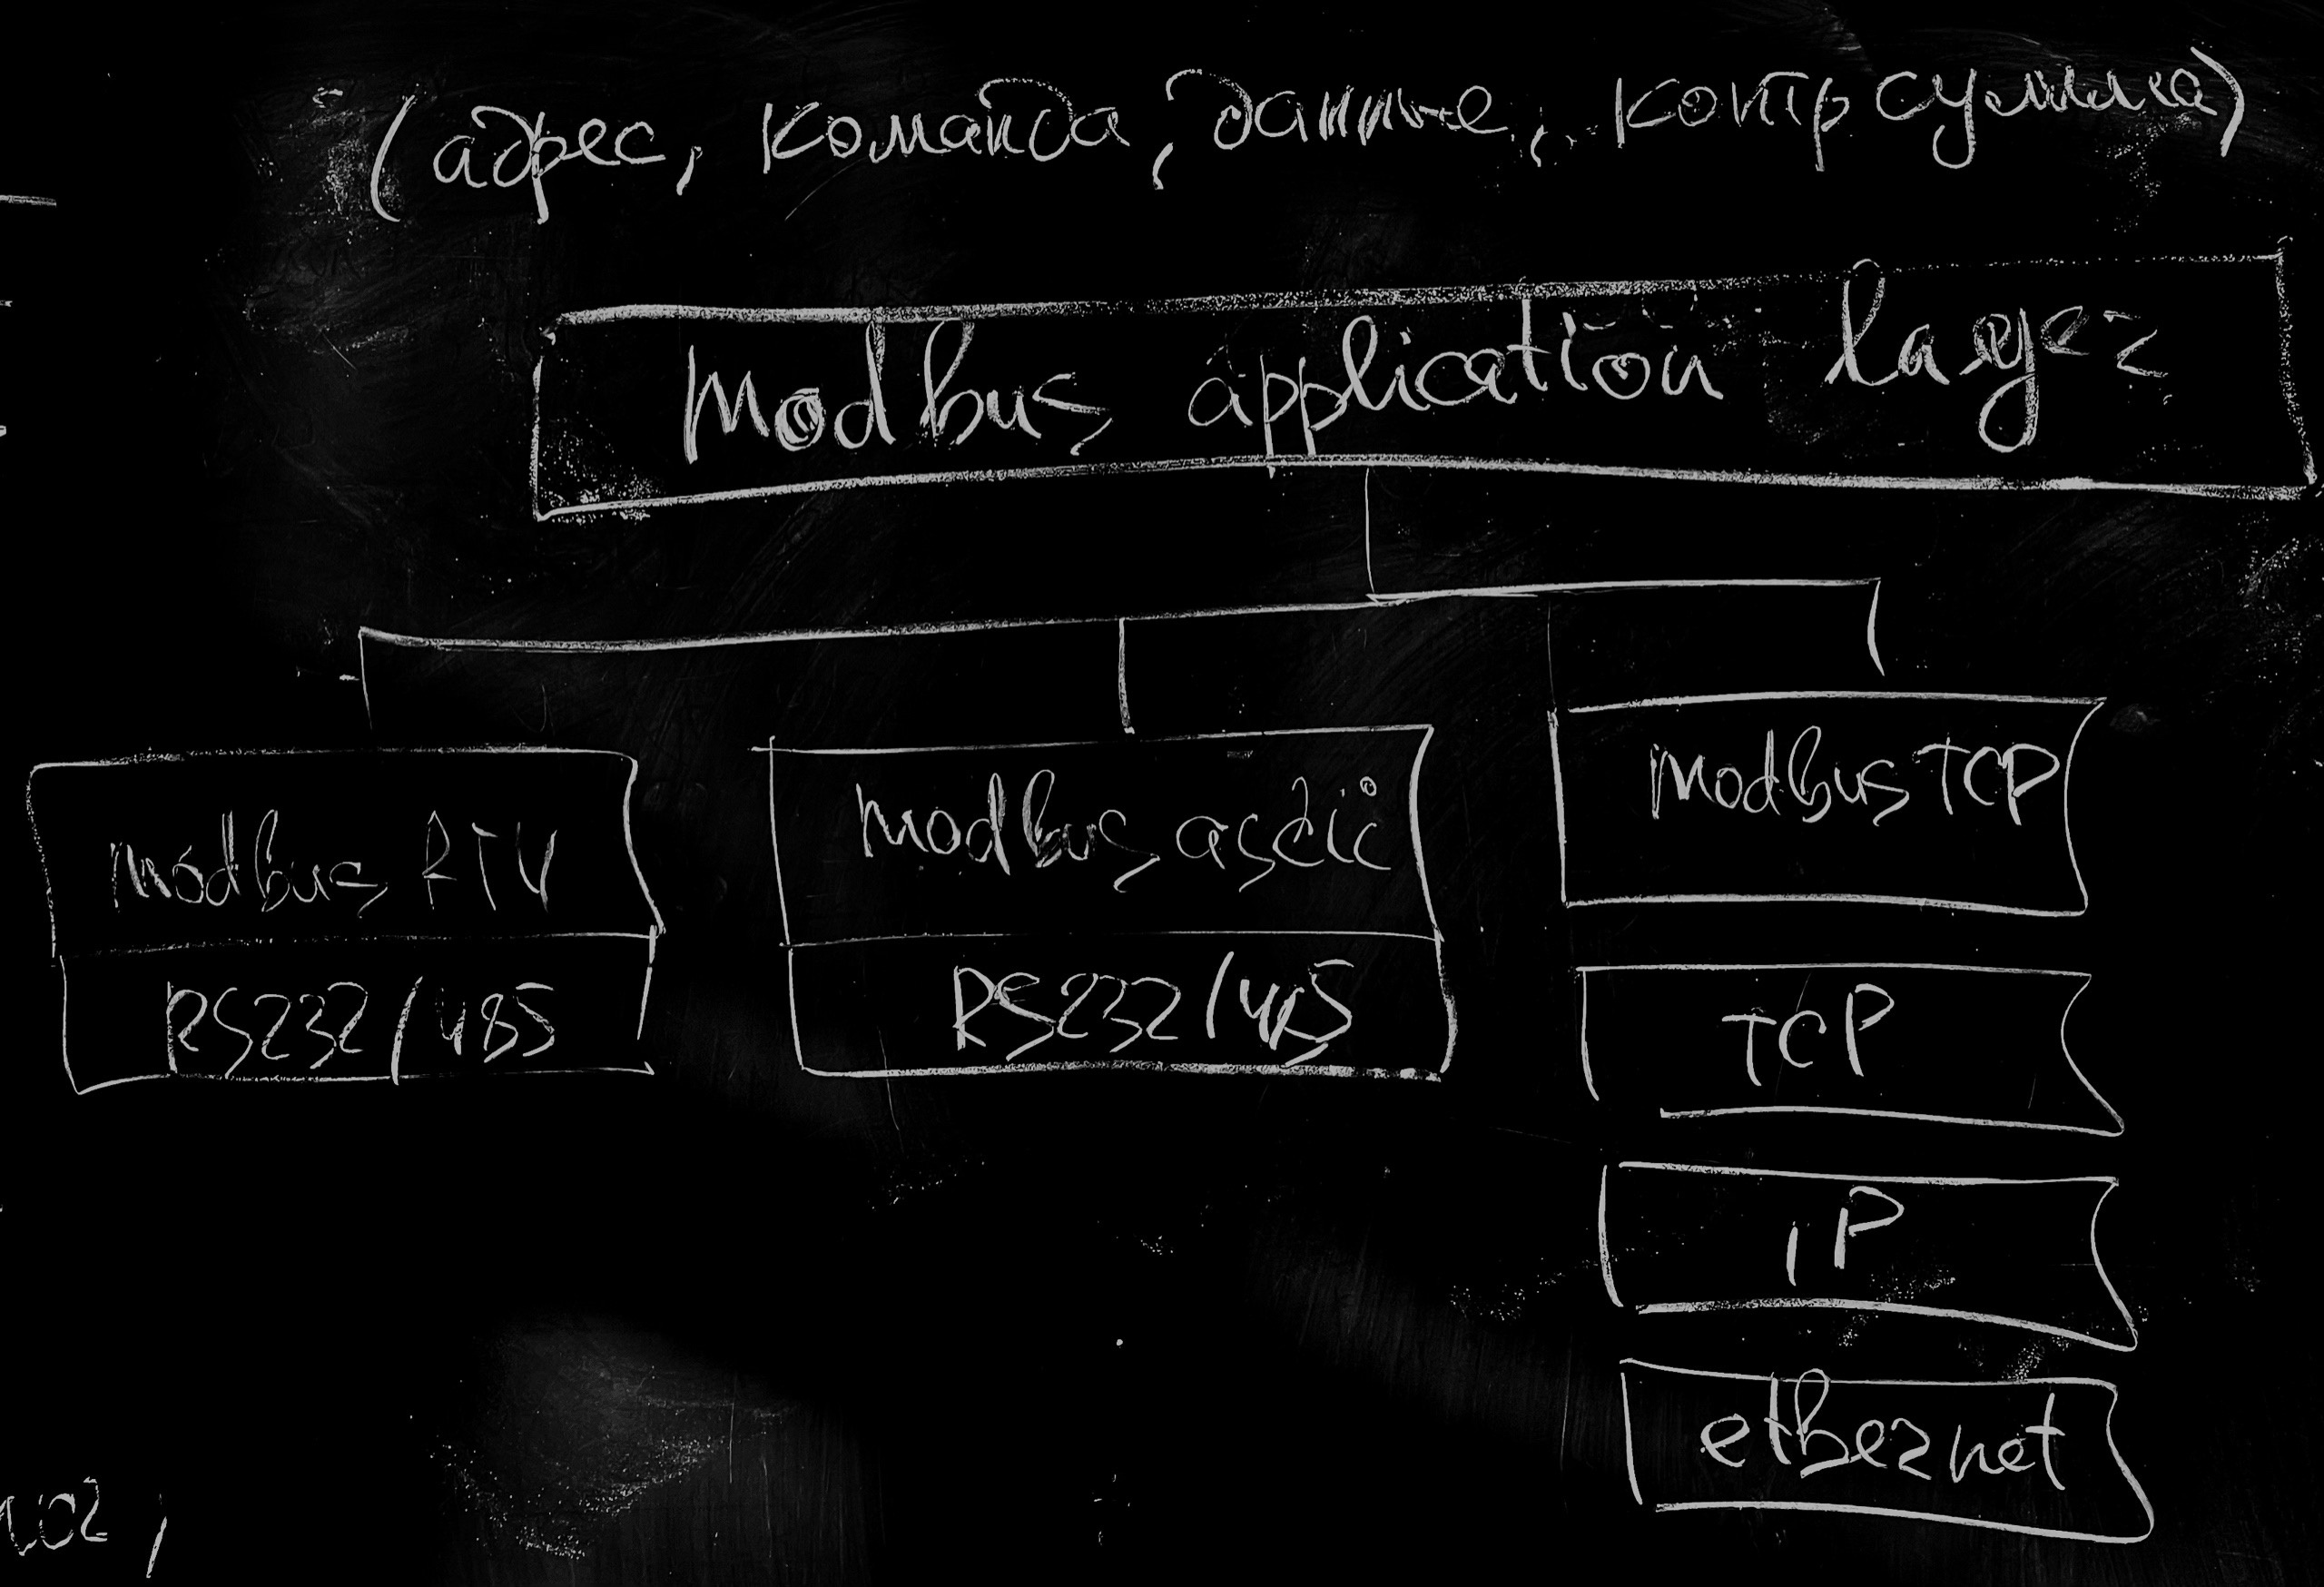 (адрес, команда, данные, контр сумма)
Modbus application layer
Modbus RTU
RS232/485
Modbus ascii
RS232/485
Modbus TCP
TCP
iP
ethernet